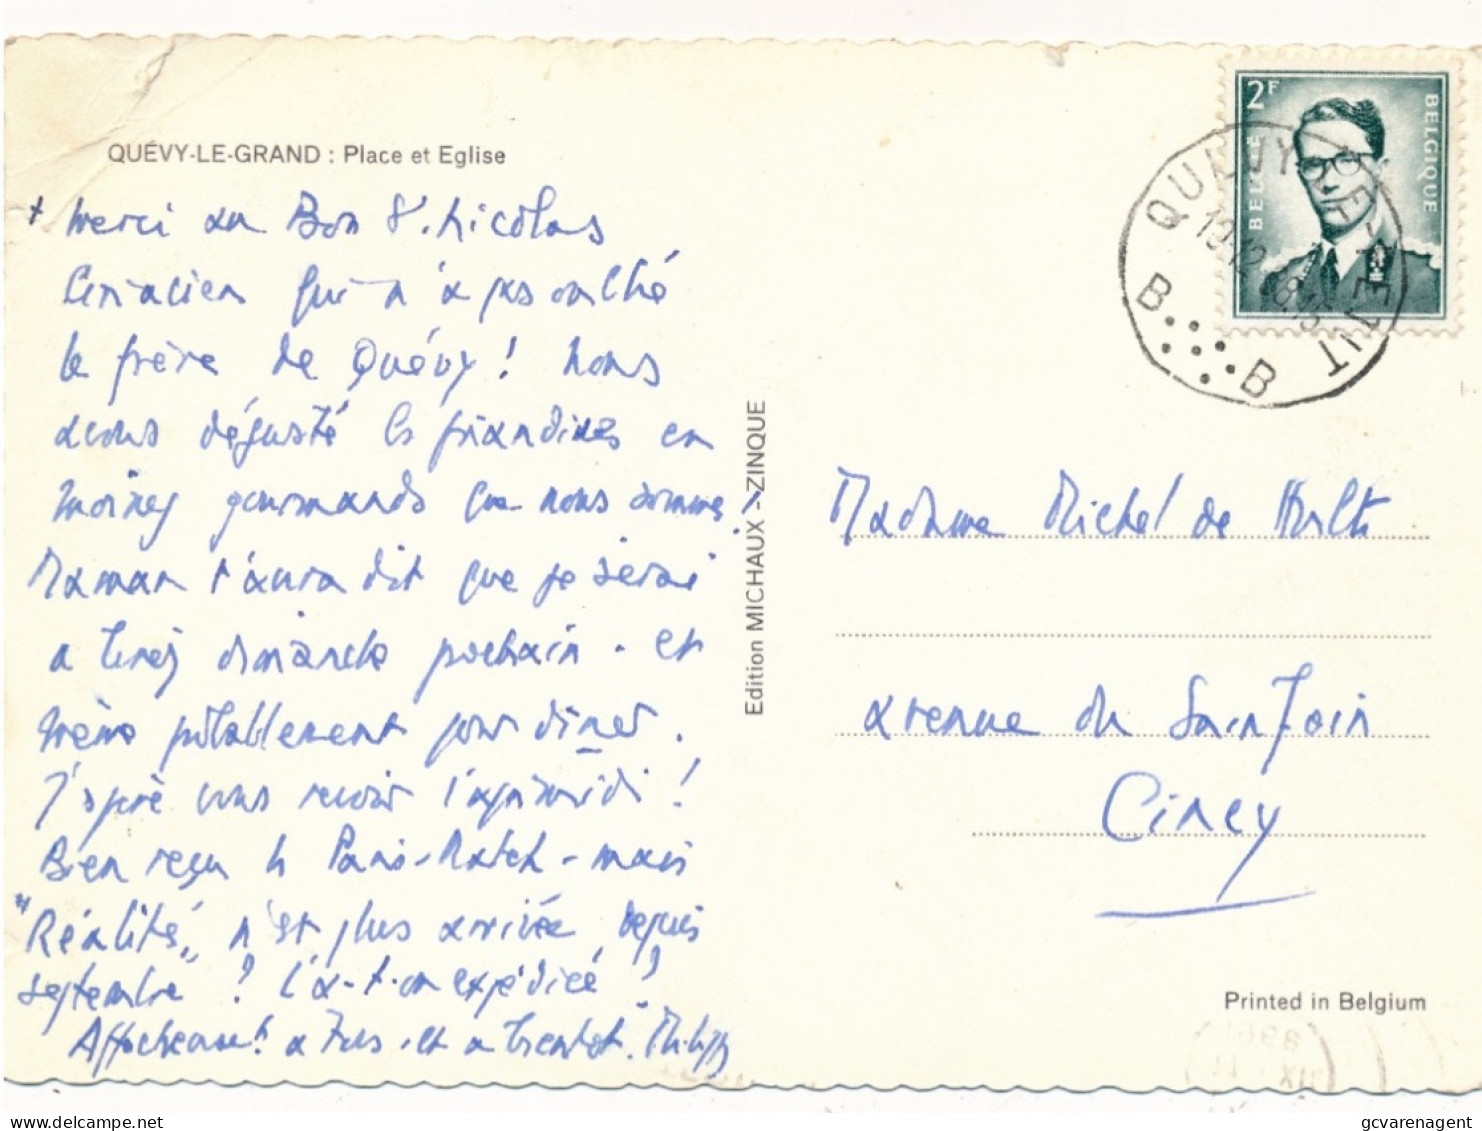 QUÉVY-LE-GRAND : Place et Eglise
+ Merci au Bon St. Nicolas
qui n'a pas oublié
le frère de Quévy ! Nous
avons dégusté les friandises en
moines gourmands que nous sommes.
Maman t'aura dit que je serai
à dimanche prochain. et
même probablement pour dîner.
J'espère vous revoir l'après-midi !
Bien reçu le Paris-Match - mais
"Réalités" n'est plus arrivée depuis
septembre ? L'a-t-on expédiée ?
Affectueus.t à Tous et à bientôt. Philippe
Edition MICHAUX - ZINQUE
2F
BELGIË BELGIQUE
QUÉVY-LE-PETIT
B B
Madame Michel de
avenue du Sainfoin
Ciney
Printed in Belgium
gcvarenagent